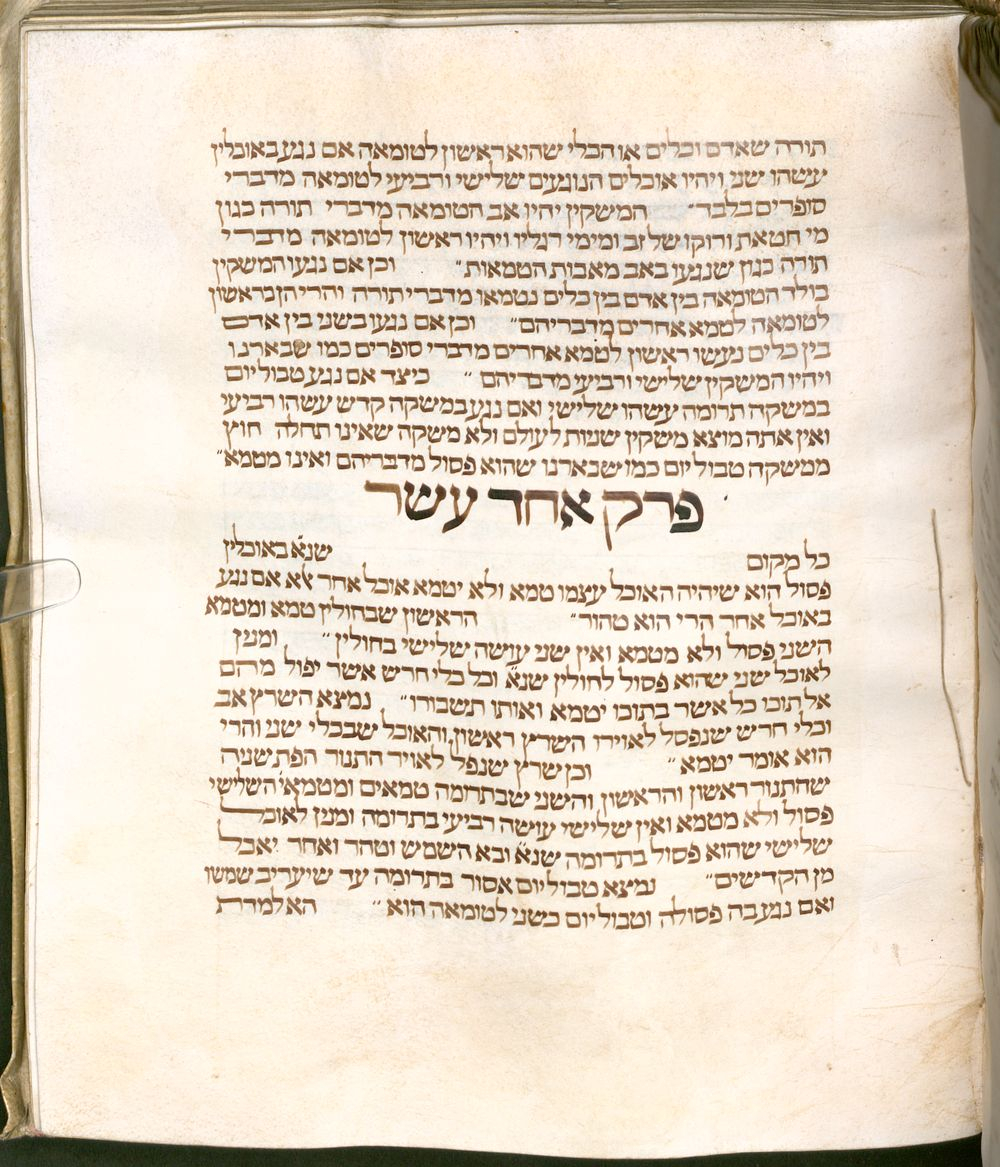 תורה שאדם וכלים או הכלי שהוא ראשון לטומאה אם נגע באוכלין
עשהו שני ויהיו אוכלים הנוגעים שלישי ורביעי לטומאה מדברי
סופרים בלבד״ המשקין יהיו אב הטומאה מדברי תורה כגון
מי חטאת ורוקו של זב ומימי רגליו ויהיו ראשון לטומאה מדברי
תורה כגון שנגעו באב מאבות הטמאות״ וכן אם נגעו המשקין
בולד הטומאה בין אדם בין כלים נטמאו מדברי תורה והרי הן כראשון
לטומאה לטמא אחרים מדבריהם״ וכן אם נגעו בשני בין אדם
בין כלים נעשו ראשון לטמא אחרים מדברי סופרים כמו שבארנו
ויהיו המשקין שלישי ורביעי מדבריהם ״ כיצד אם נגע טבול יום
במשקה תרומה עשהו שלישי ואם נגע במשקה קדש עשהו רביעי
ואין אתה מוצא משקין שניות לעולם ולא משקה שאינו תחלה חוץ
ממשקה טבול יום כמו שבארנו שהוא פסול מדבריהם ואינו מטמא״
פרק אחד עשר
כל מקום שנא̇ באוכלין
פסול הוא שיהיה האוכל עצמו טמא ולא יטמא אוכל אחר אלא אם נגע
באוכל אחר הרי הוא טהור״ הראשון שבחולין טמא ומטמא
השני פסול ולא מטמא ואין שני עושה שלישי בחולין ״ ומנין
לאוכל שני שהוא פסול לחולין שנא̇ וכל כלי חרש אשר יפול מהם
אל תוכו כל אשר בתוכו יטמא ואותו תשבורו״ נמצא השרץ אב
וכלי חרש שנפסל לאוירו השרץ ראשון והאוכל שבכלי שני והרי
הוא אומר יטמא ״ וכן שרץ שנפל לאויר התנור הפת שניה
שהתנור ראשון והראשון והשני שבתרומה טמאים ומטמאי̇ השלישי
פסול ולא מטמא ואין שלישי עושה רביעי בתרומה ומנין לאוכל
שלישי שהוא פסול בתרומה שנא̇ ובא השמש וטהר ואחר יאכל
מן הקדישים״ נמצא טבול יום אסור בתרומה עד שיעריב שמשו
ואם נגע בה פסולה וטבול יום כשני לטומאה הוא ״ הא למדת